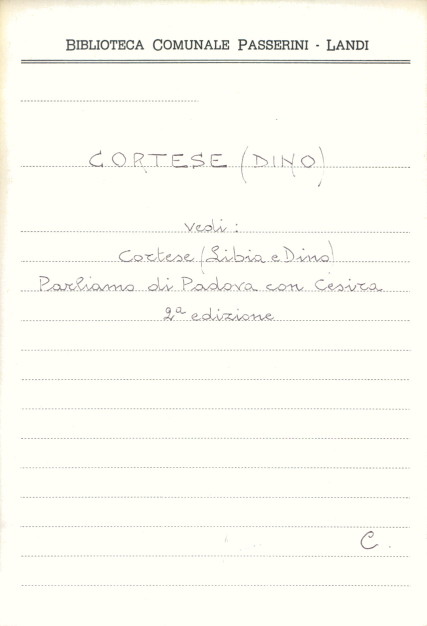 BIBLIOTECA COMUNALE PASSERINI - LANDI
CORTESE (DINO)
vedi :
Cortese (Libia e Dino)
Parliamo di Padova con Cesira
2ª edizione
C.